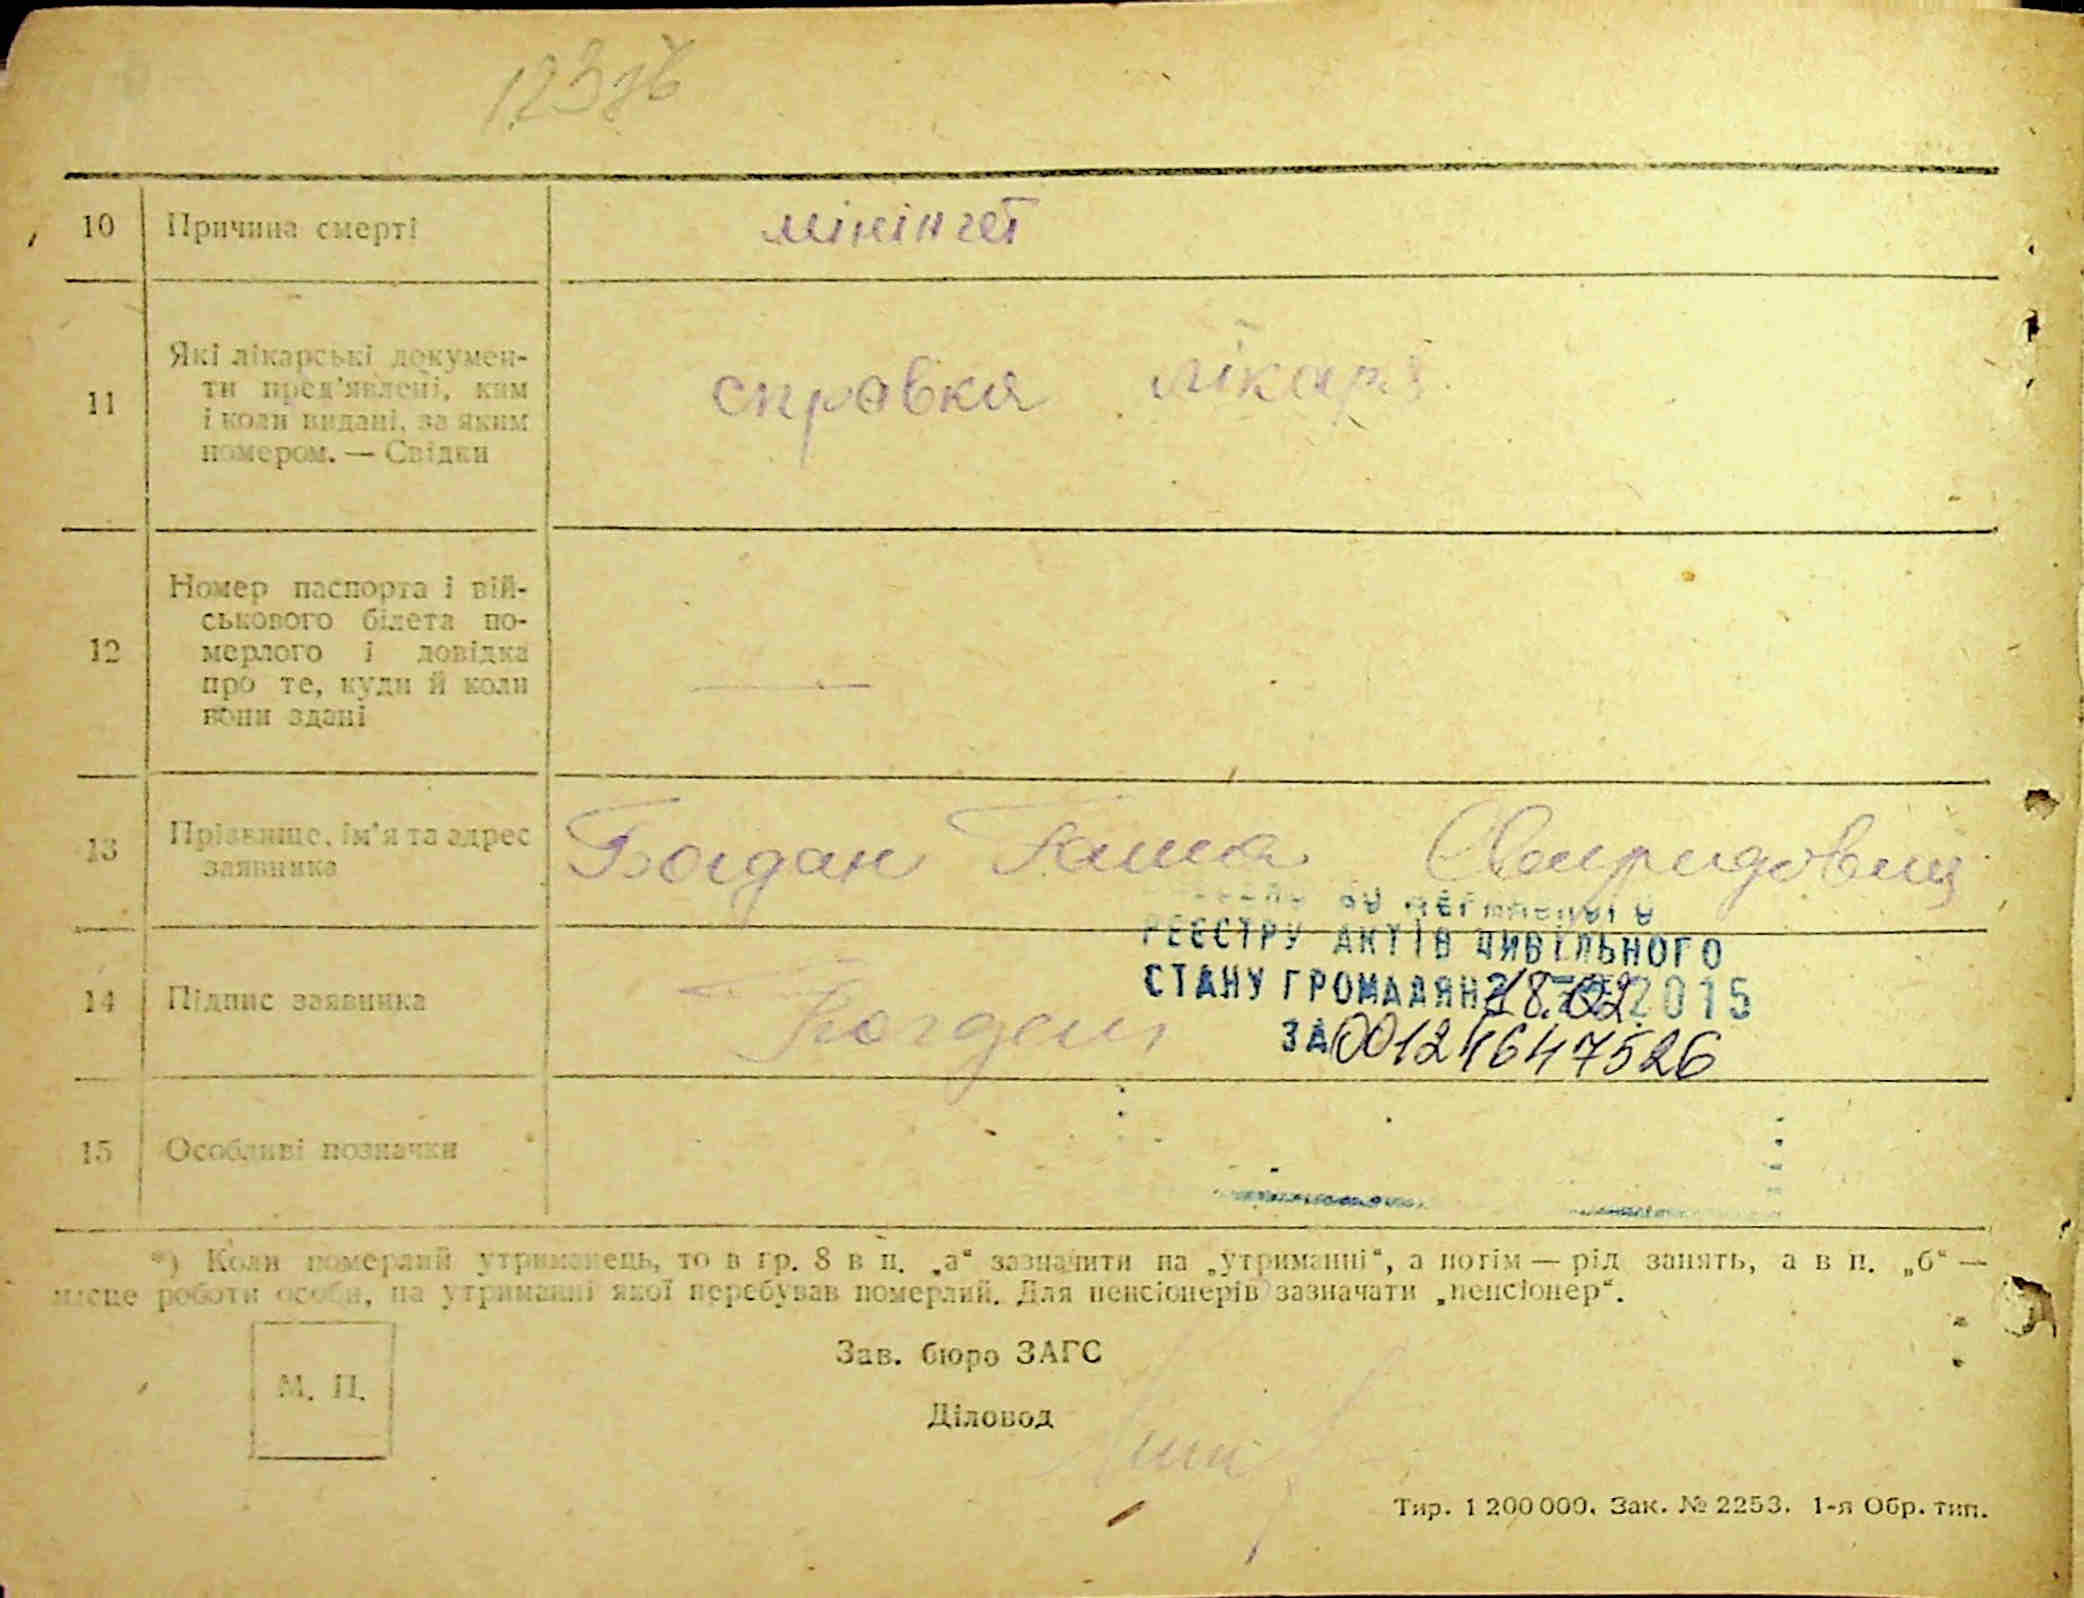 10 Причина смерті мінінгет
11 Які лікарські докумен-
ти пред'явлені, ким
і коли видані, за яким
номером. — Свідки
справка лікаря
12 Номер паспорта і вій-
ськового білета по-
мерлого і довідка
про те, куди й коли
вони здані
13 Прізвище, ім'я та адрес
заявника
Богдан
РЕЄСТРУ АКТІВ ЦИВІЛЬНОГО
СТАНУ ГРОМАДЯН 2015
14 Підпис заявника Богдан
ЗА 00124647526
15 Особливі позначки
*) Коли померлий утриманець, то в гр. 8 в п. „а“ зазначити на „утриманні“, а потім — рід занять, а в п. „б“ —
місце роботи особи, на утриманні якої перебував померлий. Для пенсіонерів зазначати „пенсіонер“.
М. П.
Зав. бюро ЗАГС
Діловод
Тир. 1 200 000. Зак. № 2253. 1-я Обр. тип.